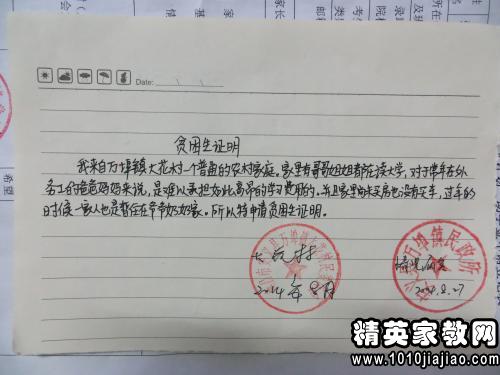 Date:
贫困生证明
我来自万埠镇大花村一个普通的农村家庭。家里有哥哥姐姐都在读大学,对于常年在外
务工的爸爸妈妈来说,是难以承担如此高昂的学习费用的。并且家里尚未买房也没有买车,过年的
时候一家人也是暂住在爷爷奶奶家。所以特申请贫困生证明。
万埠镇民政所
情况属实
2014年8月
2014.8.27
精英家教网
www.1010jiajiao.com